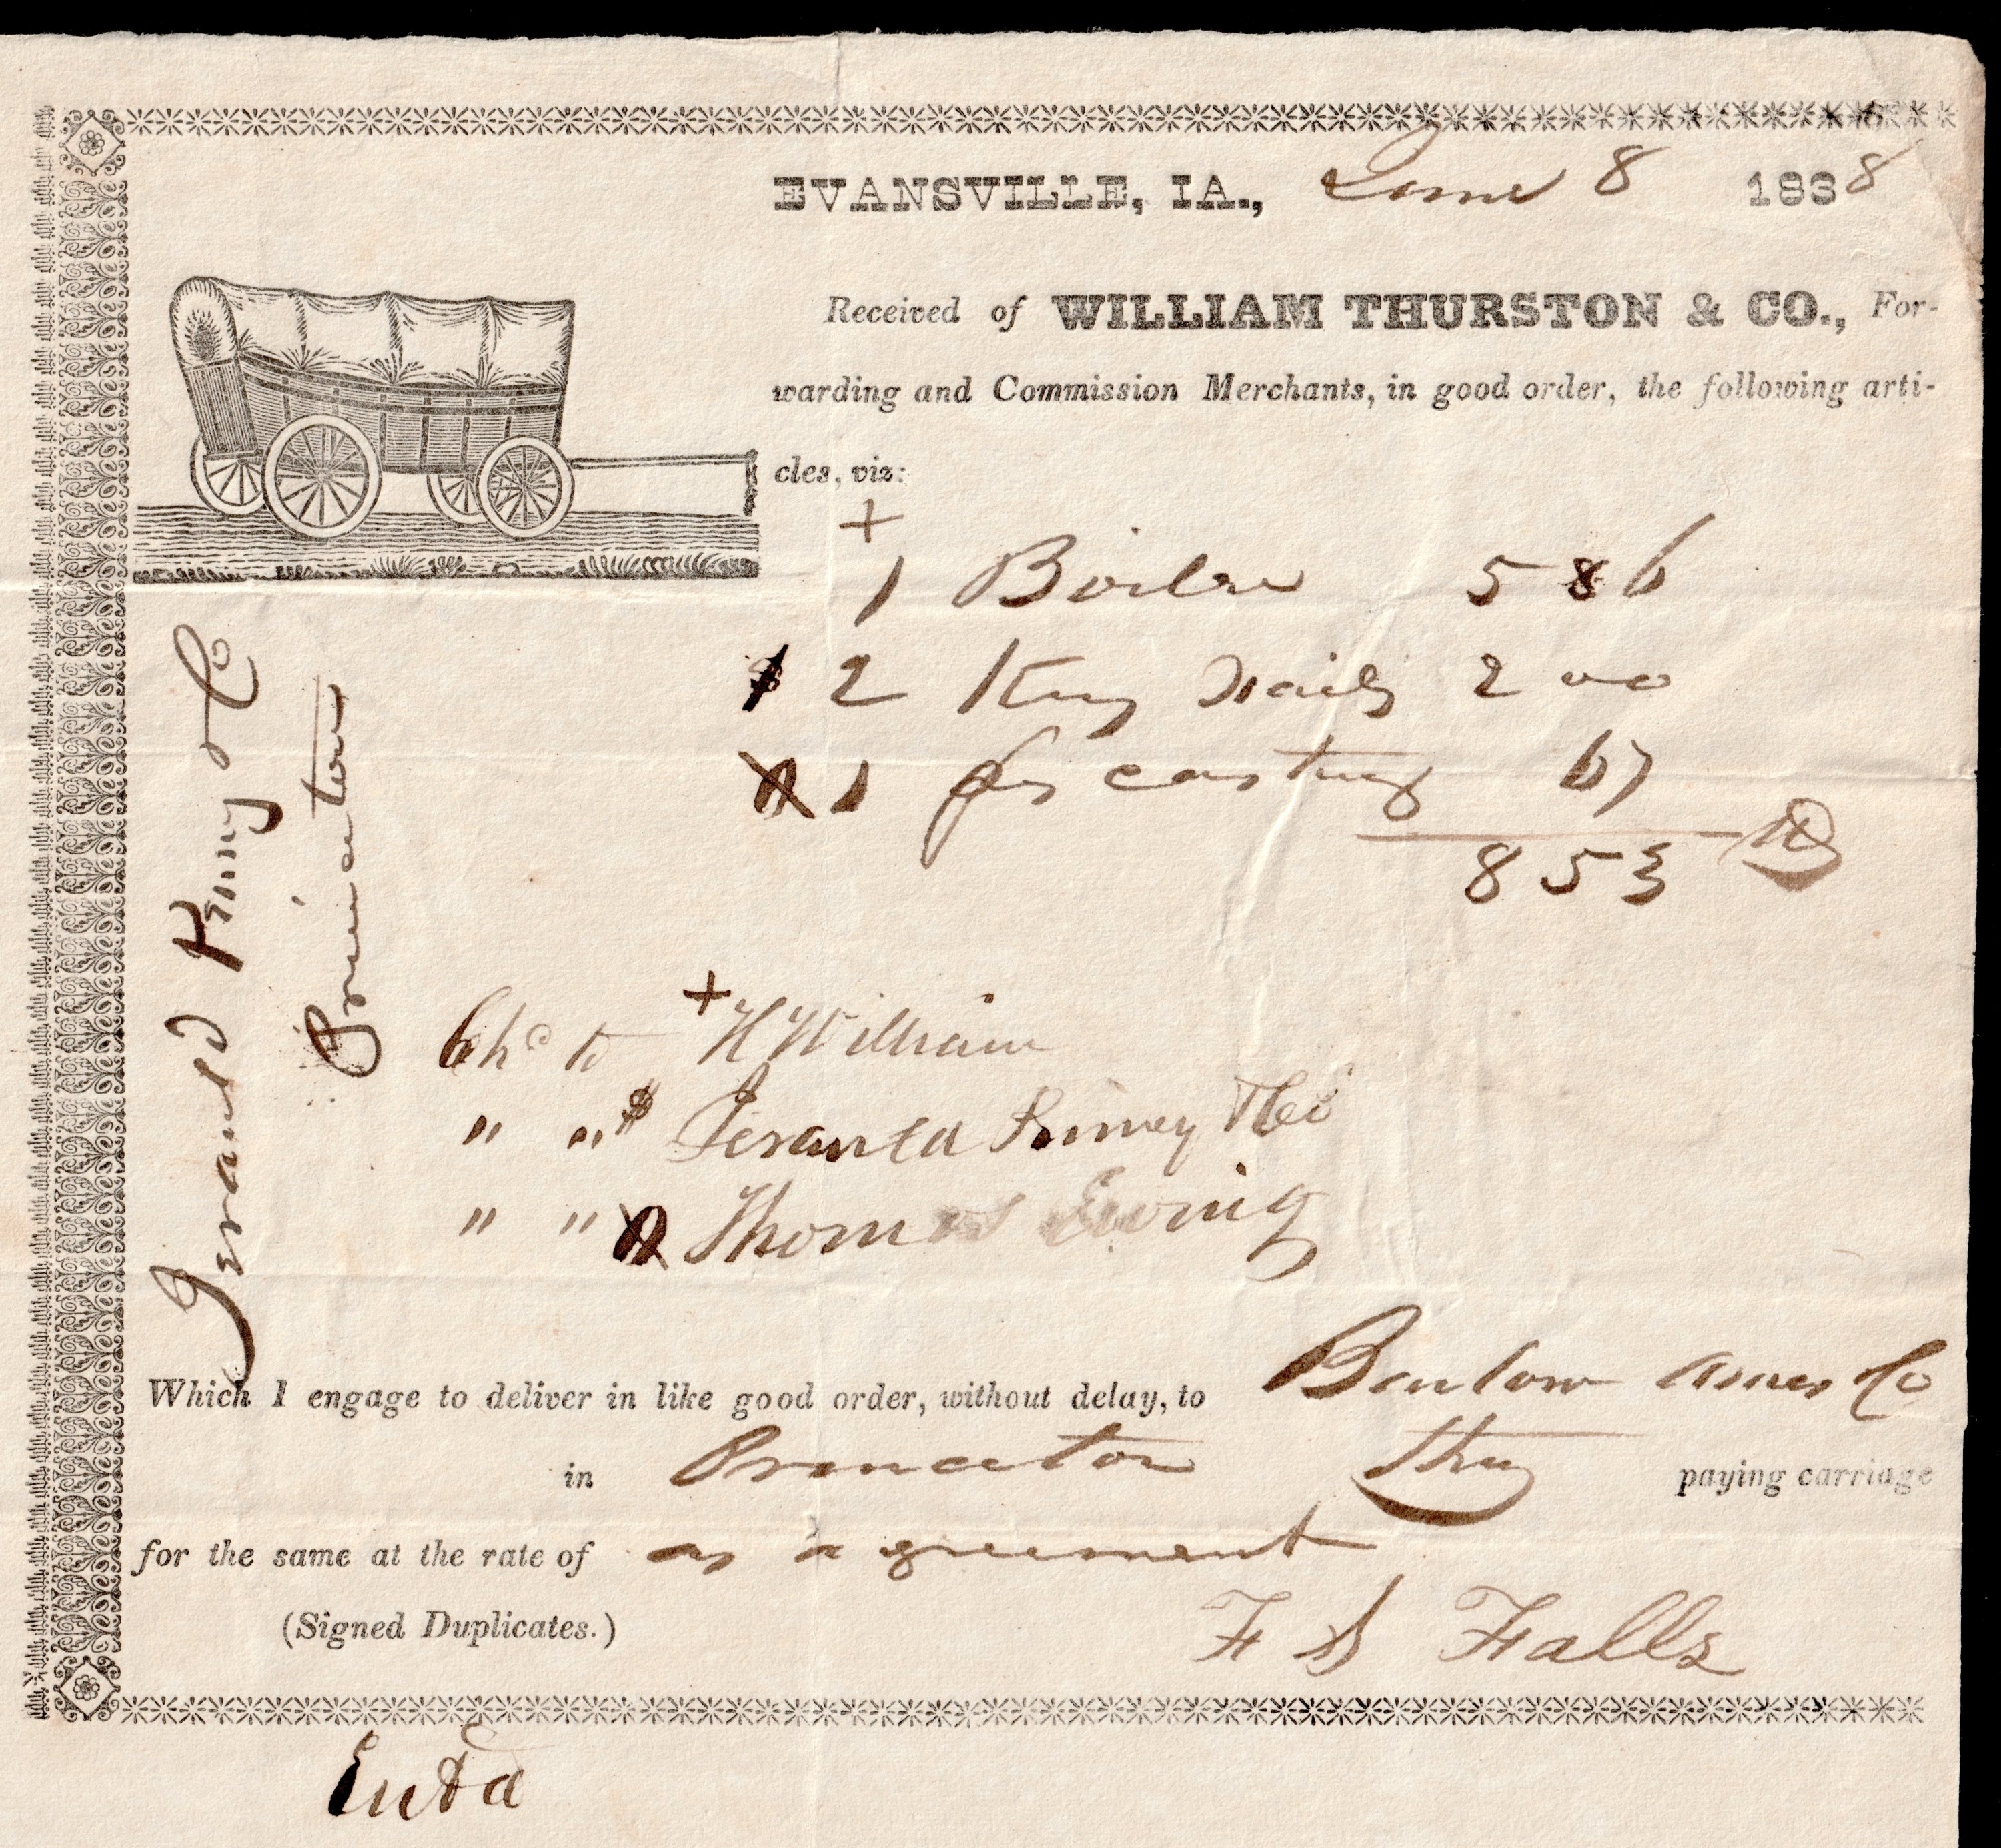 EVANSVILLE, IA., June 8 1838
Received of WILLIAM THURSTON & CO., For-
warding and Commission Merchants, in good order, the following arti-
cles, viz:
+
1 Boiler 586
2 Keg Nails 200
1 casting 67
853
Princeton
Chd to + H William
" "
" " Thomas Ewing
Which I engage to deliver in like good order, without delay, to Co
in Princeton They paying carriage
for the same at the rate of as agreement
(Signed Duplicates.) F S Falls
Entd